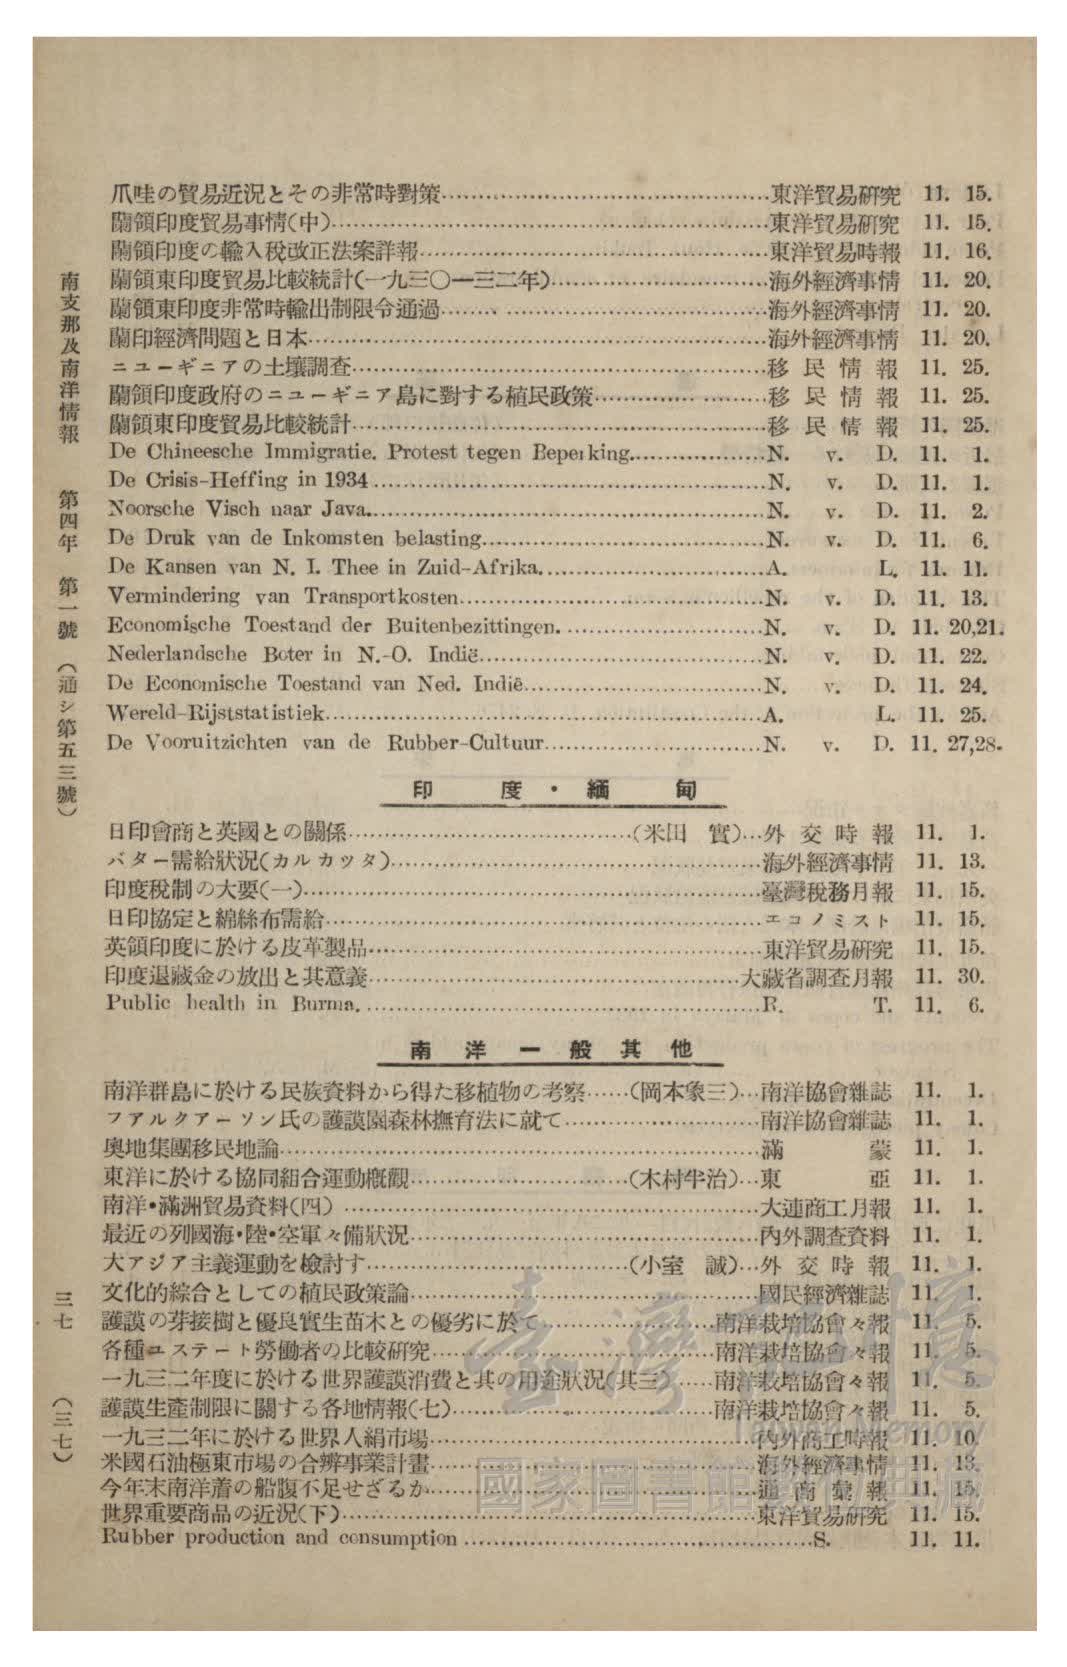 南支那及南洋情報　第四年　第一號　（通シ第五三號）
三七　（三七）
爪哇の貿易近況とその非常時對策……東洋貿易硏究 11. 15.
蘭領印度貿易事情(中)……東洋貿易硏究 11. 15.
蘭領印度の輸入稅改正法案詳報……東洋貿易時報 11. 16.
蘭領東印度貿易比較統計(一九三〇—三二年)……海外經濟事情 11. 20.
蘭領東印度非常時輸出制限令通過……海外經濟事情 11. 20.
蘭印經濟問題と日本……海外經濟事情 11. 20.
ニユーギニアの土壤調查……移民情報 11. 25.
蘭領印度政府のニユーギニア島に對する植民政策……移民情報 11. 25.
蘭領東印度貿易比較統計……移民情報 11. 25.
De Chineesche Immigratie. Protest tegen Beperking……N. v. D. 11. 1.
De Crisis-Heffing in 1934……N. v. D. 11. 1.
Noorsche Visch naar Java……N. v. D. 11. 2.
De Druk van de Inkomsten belasting……N. v. D. 11. 6.
De Kansen van N. I. Thee in Zuid-Afrika……A. L. 11. 11.
Vermindering van Transportkosten……N. v. D. 11. 13.
Economische Toestand der Buitenbezittingen……N. v. D. 11. 20,21.
Nederlandsche Boter in N.-O. Indië……N. v. D. 11. 22.
De Economische Toestand van Ned. Indië……N. v. D. 11. 24.
Wereld-Rijststatistiek……A. L. 11. 25.
De Vooruitzichten van de Rubber-Cultuur……N. v. D. 11. 27,28.
印度・緬甸
日印會商と英國との關係……(米田　實)…外交時報 11. 1.
バター需給狀況(カルカツタ)……海外經濟事情 11. 13.
印度稅制の大要(一)……臺灣稅務月報 11. 15.
日印協定と綿絲布需給……エコノミスト 11. 15.
英領印度に於ける皮革製品……東洋貿易硏究 11. 15.
印度退藏金の放出と其意義……大藏省調查月報 11. 30.
Public health in Burma.……R. T. 11. 6.
南洋一般其他
南洋群島に於ける民族資料から得た移植物の考察……(岡本象三)…南洋協會雜誌 11. 1.
フアルクアーソン氏の護謨園森林撫育法に就て……南洋協會雜誌 11. 1.
奧地集團移民地論……滿蒙 11. 1.
東洋に於ける協同組合運動槪觀……(木村半治)…東亞 11. 1.
南洋・滿洲貿易資料(四)……大連商工月報 11. 1.
最近の列國海・陸・空軍々備狀況……內外調查資料 11. 1.
大アジア主義運動を檢討す……(小室　誠)…外交時報 11. 1.
文化的綜合としての植民政策論……國民經濟雜誌 11. 1.
護謨の芽接樹と優良實生苗木との優劣に於て……南洋栽培協會々報 11. 5.
各種エステート勞働者の比較硏究……南洋栽培協會々報 11. 5.
一九三二年度に於ける世界護謨消費と其の用途狀況(其三)……南洋栽培協會々報 11. 5.
護謨生產制限に關する各地情報(七)……南洋栽培協會々報 11. 5.
一九三二年に於ける世界人絹市場……內外商工時報 11. 10.
米國石油極東市場の合辨事業計畫……海外經濟事情 11. 13.
今年末南洋着の船腹不足せざるか……通商彙報 11. 15.
世界重要商品の近況(下)……東洋貿易硏究 11. 15.
Rubber production and consumption……S. 11. 11.
臺灣記憶
Taiwan Memory
國家圖書館數位典藏